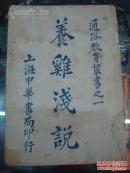 通俗教育叢書之一
養雞淺説
上海中華書局印行